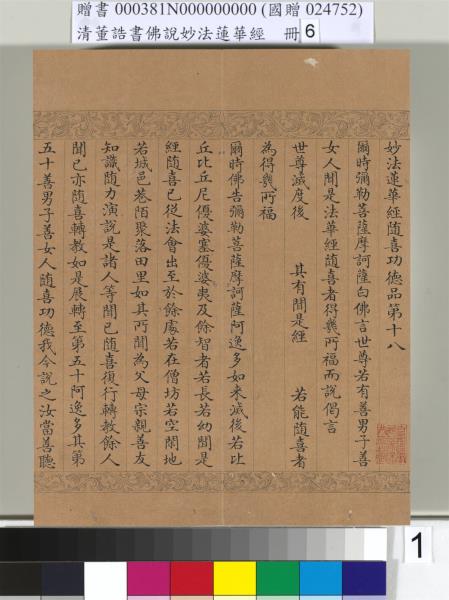 贈書 000381N000000000 (國贈 024752)
清董誥書佛說妙法蓮華經 冊 6
妙法蓮華經隨喜功德品第十八
爾時彌勒菩薩摩訶薩白佛言世尊若有善男子善
女人聞是法華經隨喜者得幾所福而說偈言
世尊滅度後 其有聞是經 若能隨喜者
為得幾所福
爾時佛告彌勒菩薩摩訶薩阿逸多如來滅後若比
丘比丘尼優婆塞優婆夷及餘智者若長若幼聞是
經隨喜已從法會出至於餘處若在僧坊若空閑地
若城邑巷陌聚落田里如其所聞為父母宗親善友
知識隨力演說是諸人等聞已隨喜復行轉教餘人
聞已亦隨喜轉教如是展轉至第五十阿逸多其第
五十善男子善女人隨喜功德我今說之汝當善聽
1